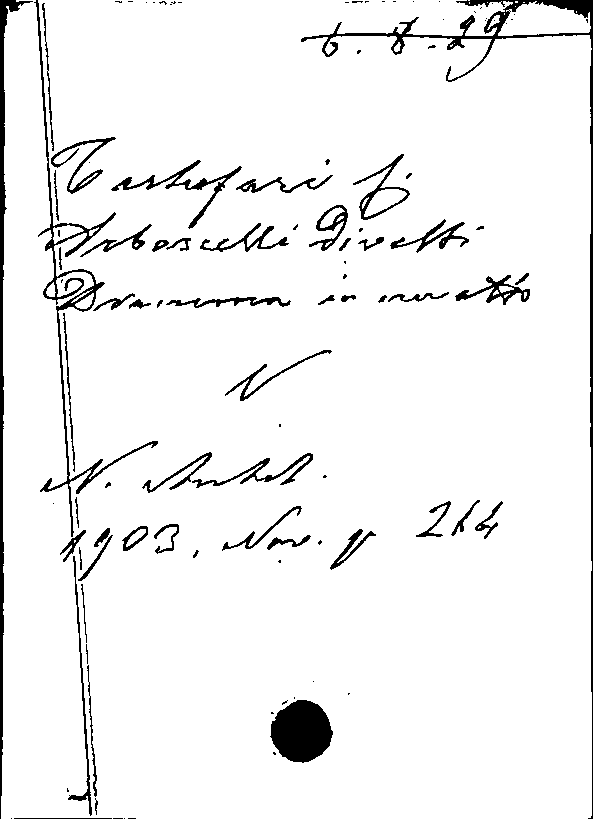 6. 8. 29
Arboscelli Divelti
Dramma in un atto
N
N. Antol.
1903, Nov. p 264